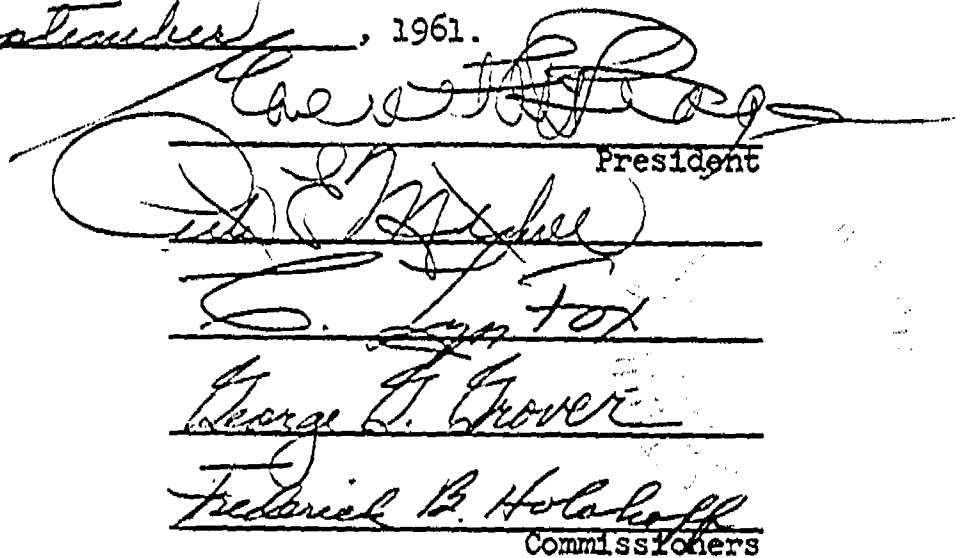 September, 1961.
President
C. Lyn Fox
George G. Grover
Frederick B. Holoboff
Commissioners